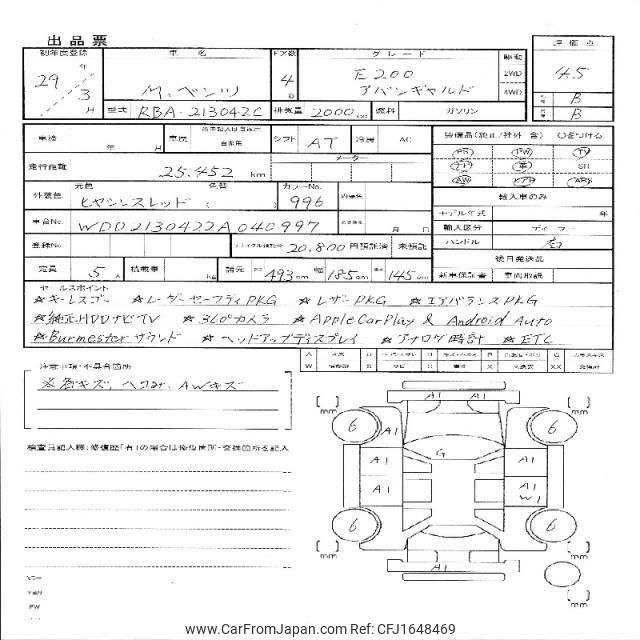 出品票
初年度登録 車名 ドア数 グレード 駆動 評価点
29年 3月 M.ベンツ 4D E200 アバンギャルド 2WD 4WD 4.5
型式 RBA-213042C 排気量 2000cc 燃料 ガソリン B B
車検 年 月 車歴 自家用 シフト AT 冷房 AC
装備品(純正/社外 含) ○をつける
PS PW TV
SR
AW エアB ABS
走行距離 25.452 km メーター
輸入車のみ
外装色 元色 ヒヤシンスレッド 色替 ( カラーNo. 996 内装色
モデル年式 年
車台No. WDD2130422A040997 月 日
輸入区分 ディーラー
ハンドル 右
登録No. リサイクル預託金 20.800 円預託済 未預託
後日発送品
定員 5人 積載量 kg 諸元 長さ 493cm 幅 185cm 高さ 145cm
新車保証書 車両取説
セールスポイント
☆キーレスゴー ☆レーダーセーフティPKG ☆レザーPKG ☆エアバランスPKG
☆純正HDDナビTV ☆360°カメラ ☆AppleCarPlay & Android Auto
☆Burmesterサウンド ☆ヘッドアップディスプレイ ☆アナログ時計 ☆ETC
注意事項・不具合箇所
※各キズ、ヘコミ、AWキズ
検査員記入欄:修復歴「有」の場合は修復箇所・交換箇所を記入
[ ] mm [ ] mm
A1 A1
6 A1 6
G
A1 A1
A1 A1 W1
6 6
A1
[ ] mm [ ] mm
[ ] mm
www.CarFromJapan.com Ref: CFJ1648469